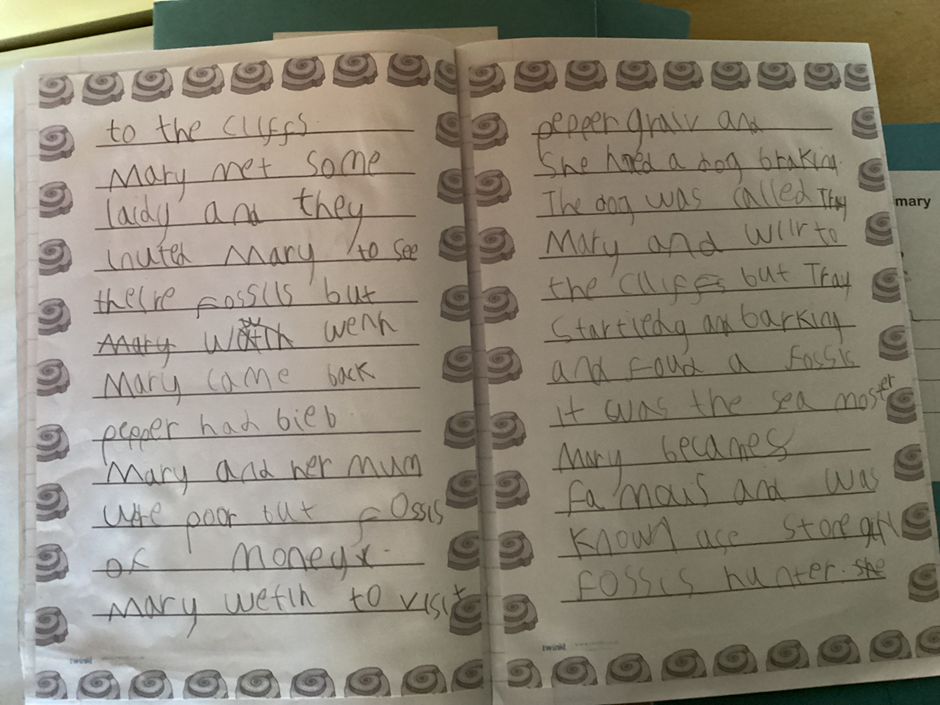 to the cliffs.
Mary met some
laidy and they
inuted Mary to see
theire Fossils but
Mary wenh
Mary came back
pepper had bieb
Mary and her mum
poor but fossis
of money
Mary weth to visit
twinkl
pepper grair and
She had a dog braking.
The dog was called Tray
Mary and wilr to
the cliffs but Tray
startledg an barking
and foud a Fossis
it was the sea moster
Mary becames
famous and was
Known ase stone girl
Fossis hunter. she
twinkl
mary